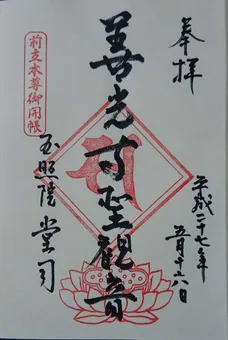 奉拝
平成二十七年
五月十六日
善光寺聖觀音
前立本尊御開帳
玉照院 堂司